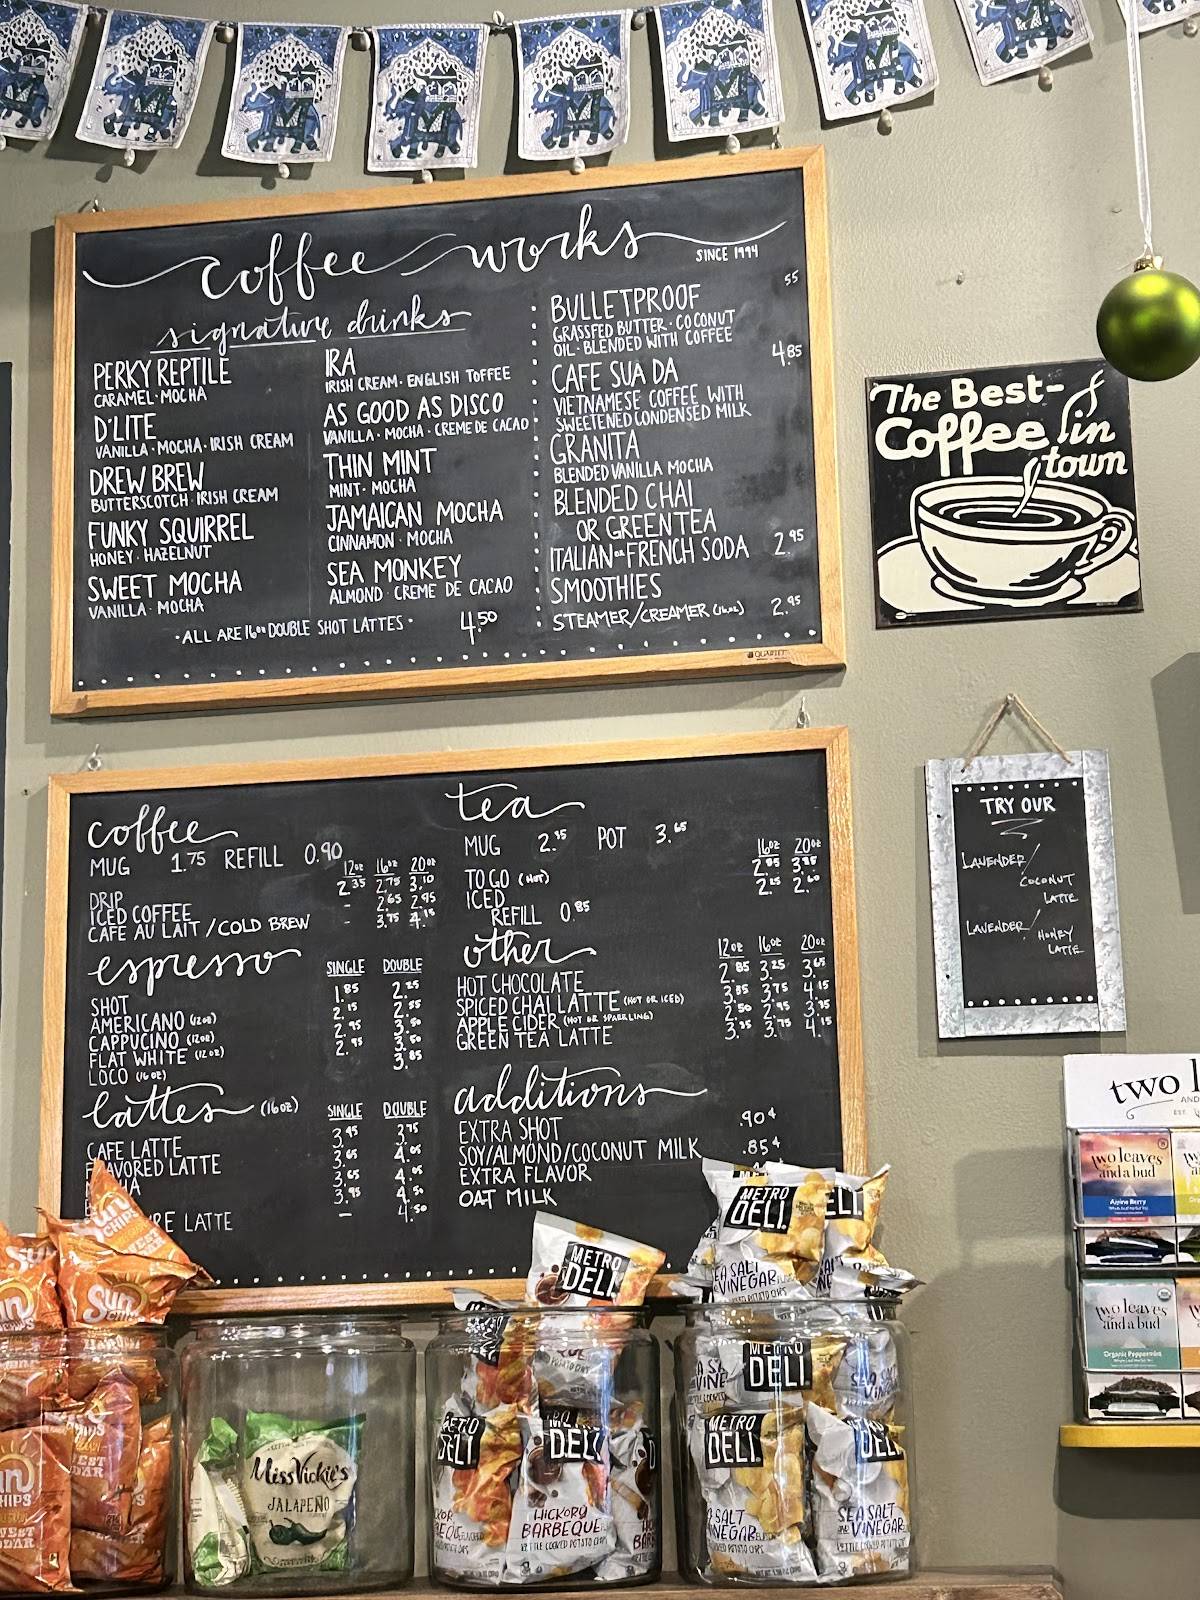 coffee works
SINCE 1994
signature drinks
PERKY REPTILE
CARAMEL · MOCHA
D'LITE
VANILLA · MOCHA · IRISH CREAM
DREW BREW
BUTTERSCOTCH · IRISH CREAM
FUNKY SQUIRREL
HONEY · HAZELNUT
SWEET MOCHA
VANILLA · MOCHA
IRA
IRISH CREAM · ENGLISH TOFFEE
AS GOOD AS DISCO
VANILLA · MOCHA · CREME DE CACAO
THIN MINT
MINT · MOCHA
JAMAICAN MOCHA
CINNAMON · MOCHA
SEA MONKEY
ALMOND · CREME DE CACAO
· ALL ARE 16oz DOUBLE SHOT LATTES · 4.50
BULLETPROOF 55
GRASSFED BUTTER · COCONUT
OIL · BLENDED WITH COFFEE
CAFE SUA DA 4.85
VIETNAMESE COFFEE WITH
SWEETENED CONDENSED MILK
GRANITA
BLENDED VANILLA MOCHA
BLENDED CHAI
OR GREEN TEA
ITALIAN OR FRENCH SODA 2.95
SMOOTHIES
STEAMER/CREAMER (16oz) 2.95
QUARTET
The Best-
Coffee in
town
coffee
MUG 1.75 REFILL 0.90
12oz 16oz 20oz
DRIP 2.35 2.75 3.10
ICED COFFEE - 2.65 2.95
CAFE AU LAIT / COLD BREW - 3.75 4.15
espresso
SINGLE DOUBLE
SHOT 1.85 2.25
AMERICANO (12oz) 2.15 2.55
CAPPUCINO (12oz) 2.95 3.50
FLAT WHITE (12oz) 2.95 3.50
LOCO (16oz) 3.85
lattes (16oz)
SINGLE DOUBLE
CAFE LATTE 3.45 3.75
FLAVORED LATTE 3.65 4.05
3.65 4.05
3.95 4.50
RE LATTE - 4.50
tea
MUG 2.35 POT 3.65
16oz 20oz
TO GO (HOT) 2.95 3.35
ICED 2.25 2.60
REFILL 0.85
other
12oz 16oz 20oz
HOT CHOCOLATE 2.85 3.25 3.65
SPICED CHAI LATTE (HOT OR ICED) 3.35 3.75 4.15
APPLE CIDER (HOT OR SPARKLING) 2.50 2.95 3.35
GREEN TEA LATTE 3.35 3.75 4.15
additions
EXTRA SHOT .90¢
SOY/ALMOND/COCONUT MILK .85¢
EXTRA FLAVOR
OAT MILK
TRY OUR
LAVENDER/
COCONUT
LATTE
LAVENDER/
HONEY
LATTE
two l
AND
EST.
two leaves
and a bud
Alpine Berry
two leaves
and a bud
Organic Peppermint
Sun
CHIPS
Sun
CHIPS
Miss Vickie's
JALAPEÑO
METRO
DELI
METRO
DELI
HICKORY
BARBEQUE
KETTLE COOKED POTATO CHIPS
METRO
DELI
SEA SALT
VINEGAR
METRO
DELI
METRO
DELI
SEA SALT
AND VINEGAR
KETTLE COOKED POTATO CHIPS